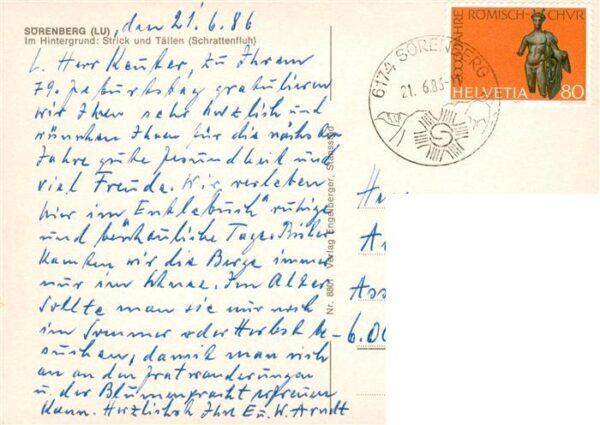 SÖRENBERG (LU), den 21.6.86
Im Hintergrund: Strick und Tällen (Schrattenfluh)
L. Herr Keuter, zu Ihrem
79. Geburtstag gratulieren
wir Ihnen sehr herzlich und
wünschen Ihnen für die nächsten
Jahre gute Gesundheit und
viel Freude. Wir verleben
hier im "Entlebuch" ruhige
und beschauliche Tage. Bisher
kannten wir die Berge immer
nur im Winter. Im Alter
sollte man sie nur noch
im Sommer oder Herbst be-
suchen, damit man sich
an den Gratwanderungen
u. der Blumenpracht erfreuen
kann. Herzlichst Ihre E. u. W. Arndt
Nr. 8801 Verlag Engelberger, Stansstad
6174 SÖRENBERG
21.6.86
2000 JAHRE RÖMISCH-CHUR
HELVETIA 80
Her
Ar
Ass
6.00